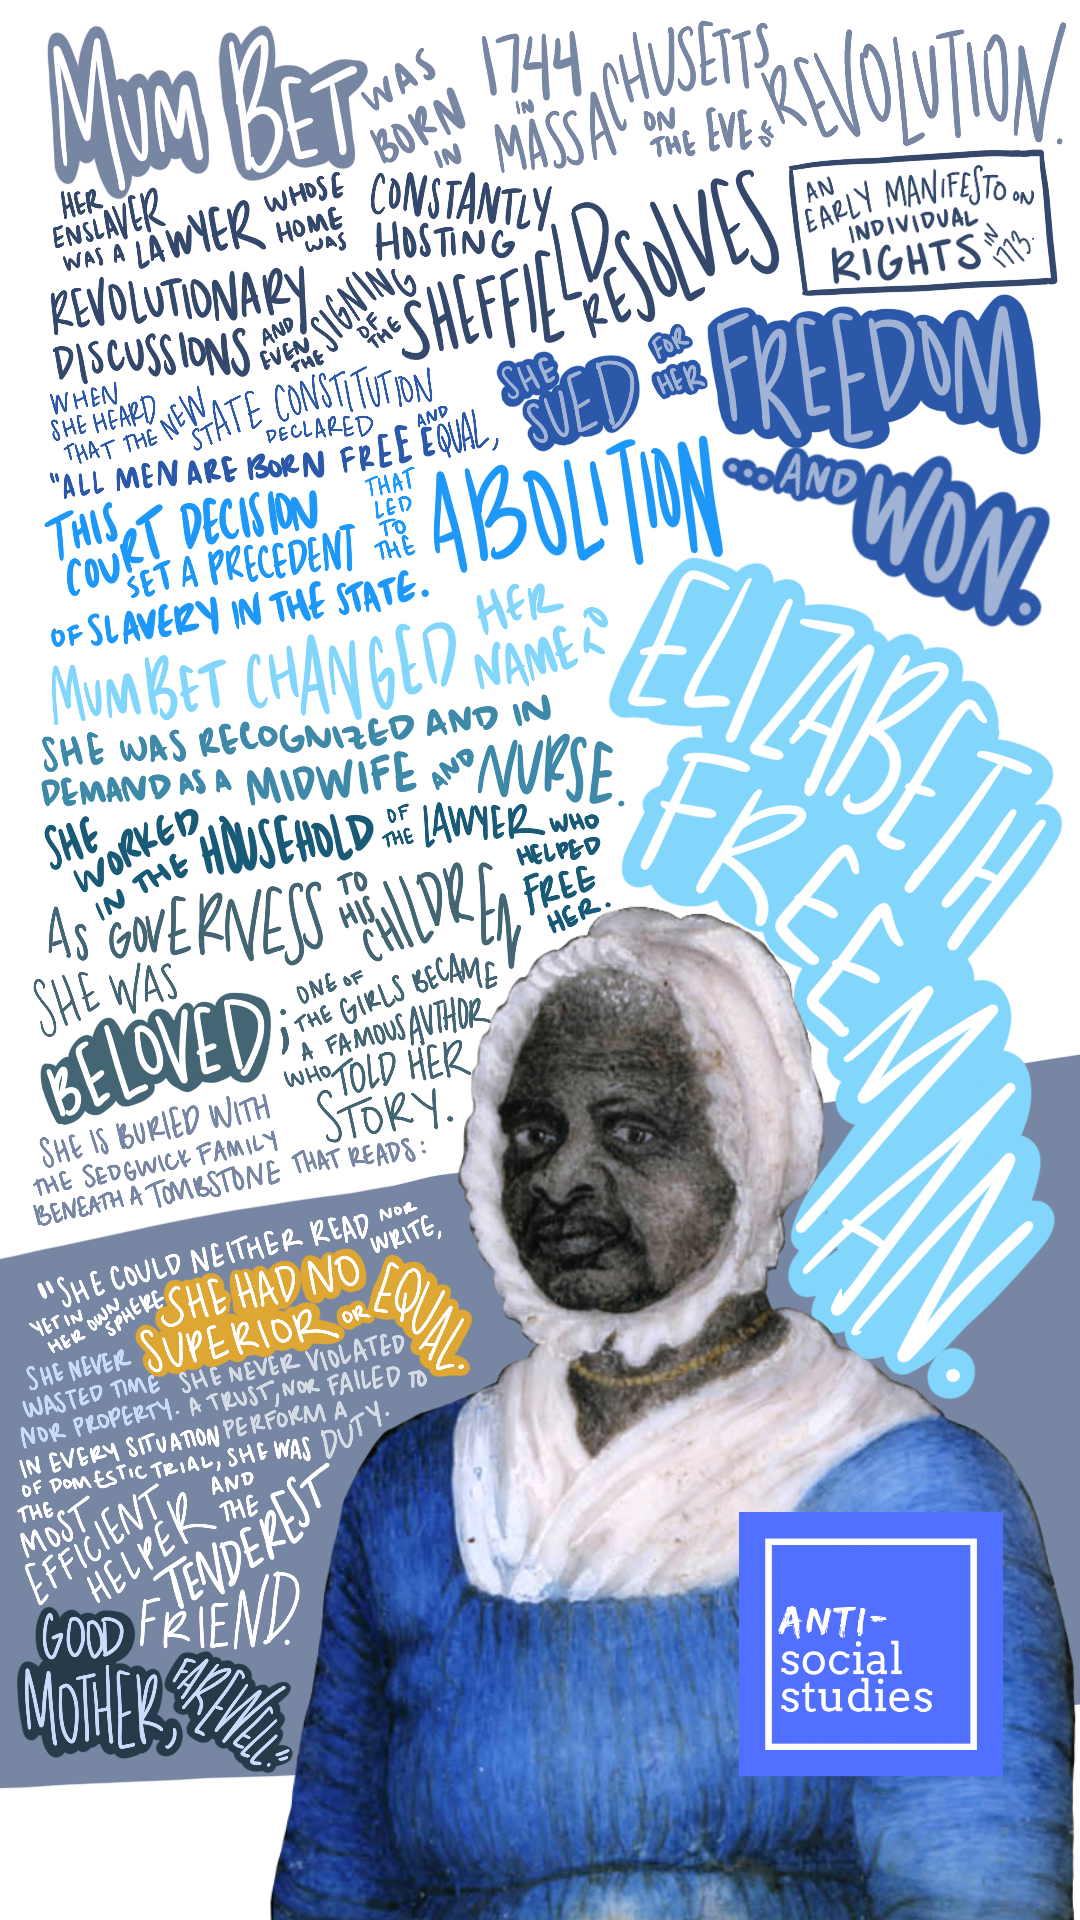 MUM BET WAS BORN IN 1744 IN MASSACHUSETTS ON THE EVE OF REVOLUTION.
HER ENSLAVER WAS A LAWYER WHOSE HOME WAS CONSTANTLY HOSTING
REVOLUTIONARY DISCUSSIONS AND EVEN THE SIGNING OF THE SHEFFIELD RESOLVES
AN EARLY MANIFESTO ON INDIVIDUAL RIGHTS IN 1773.
WHEN SHE HEARD THAT THE NEW STATE CONSTITUTION DECLARED
"ALL MEN ARE BORN FREE AND EQUAL,
SHE SUED FOR HER FREEDOM
...AND WON.
THIS COURT DECISION SET A PRECEDENT THAT LED TO THE ABOLITION
OF SLAVERY IN THE STATE.
MUMBET CHANGED HER NAME TO
ELIZABETH
FREEMAN.
SHE WAS RECOGNIZED AND IN
DEMAND AS A MIDWIFE AND NURSE.
SHE WORKED IN THE HOUSEHOLD OF THE LAWYER WHO HELPED FREE HER.
AS GOVERNESS TO HIS CHILDREN
SHE WAS
BELOVED;
ONE OF
THE GIRLS BECAME
A FAMOUS AUTHOR
WHO TOLD HER
STORY.
SHE IS BURIED WITH
THE SEDGWICK FAMILY
BENEATH A TOMBSTONE THAT READS:
"SHE COULD NEITHER READ NOR WRITE,
YET IN HER OWN SPHERE SHE HAD NO
SUPERIOR OR EQUAL.
SHE NEVER WASTED TIME
NOR PROPERTY.
SHE NEVER VIOLATED
A TRUST, NOR FAILED TO
PERFORM A DUTY.
IN EVERY SITUATION
OF DOMESTIC TRIAL, SHE WAS
THE MOST EFFICIENT HELPER AND THE TENDEREST
FRIEND.
GOOD
MOTHER, FAREWELL."
ANTI-
social
studies